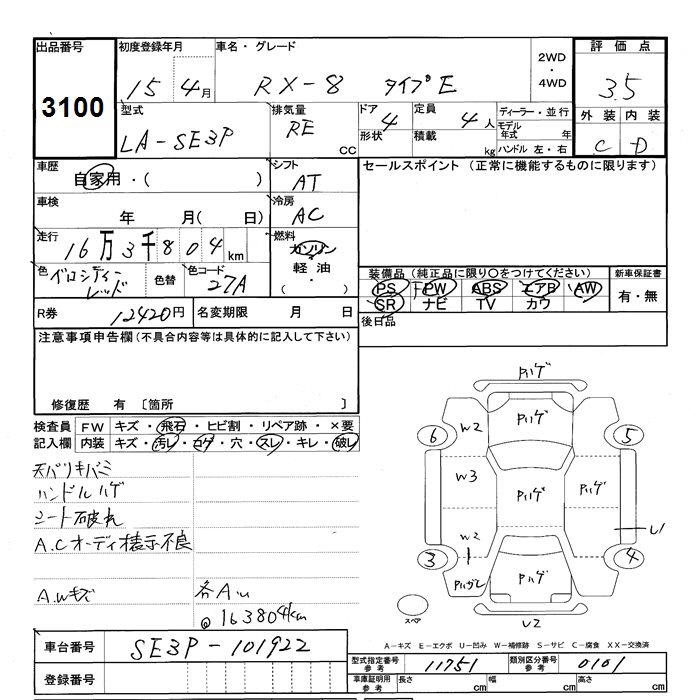 出品番号 初度登録年月 車名・グレード 2WD ・ 4WD 評価点
3100 15 4月 RX-8 タイプE 3.5
型式 排気量 ドア 4 定員 4人 ディーラー・並行 外装 内装
LA-SE3P RE CC 形状 積載 kg モデル年式 年 C D
ハンドル 左・右
車歴 シフト セールスポイント (正常に機能するものに限ります)
自家用・( ) AT
車検 冷房
年 月( 日) AC
走行 燃料
16万3千804km ガソリン
色 色替 色コード 軽油
ベロシティーレッド 27A ・( )
装備品 (純正品に限り○をつけてください) 新車保証書
PS PW ABS エアB AW 有・無
SR ナビ TV カワ
R券 12420円 名変期限 月 日 後日品
注意事項申告欄 (不具合内容等は具体的に記入して下さい)
修復歴 有 〔箇所 〕
検査員 FW キズ・飛石・ヒビ割・リペア跡・×要
記入欄 内装 キズ・汚レ・コゲ・穴・スレ・キレ・破レ
天バリキバミ
ハンドルハゲ
シート破れ
A.Cオーディオ表示不良
A.Wキズ 各A
@163804km
Pハゲ
Pハゲ
6 W2 5
W3 Pハゲ Pハゲ
W2 U1
3 4
Pハガレ Pハゲ
スペア U2
A－キズ E－エクボ U－凹み W－補修跡 S－サビ C－腐食 XX－交換済
車台番号 SE3P-101922
型式指定番号 参考 11751 類別区分番号 参考 0101
登録番号 車庫証明用 参考 長さ cm 幅 cm 高さ cm